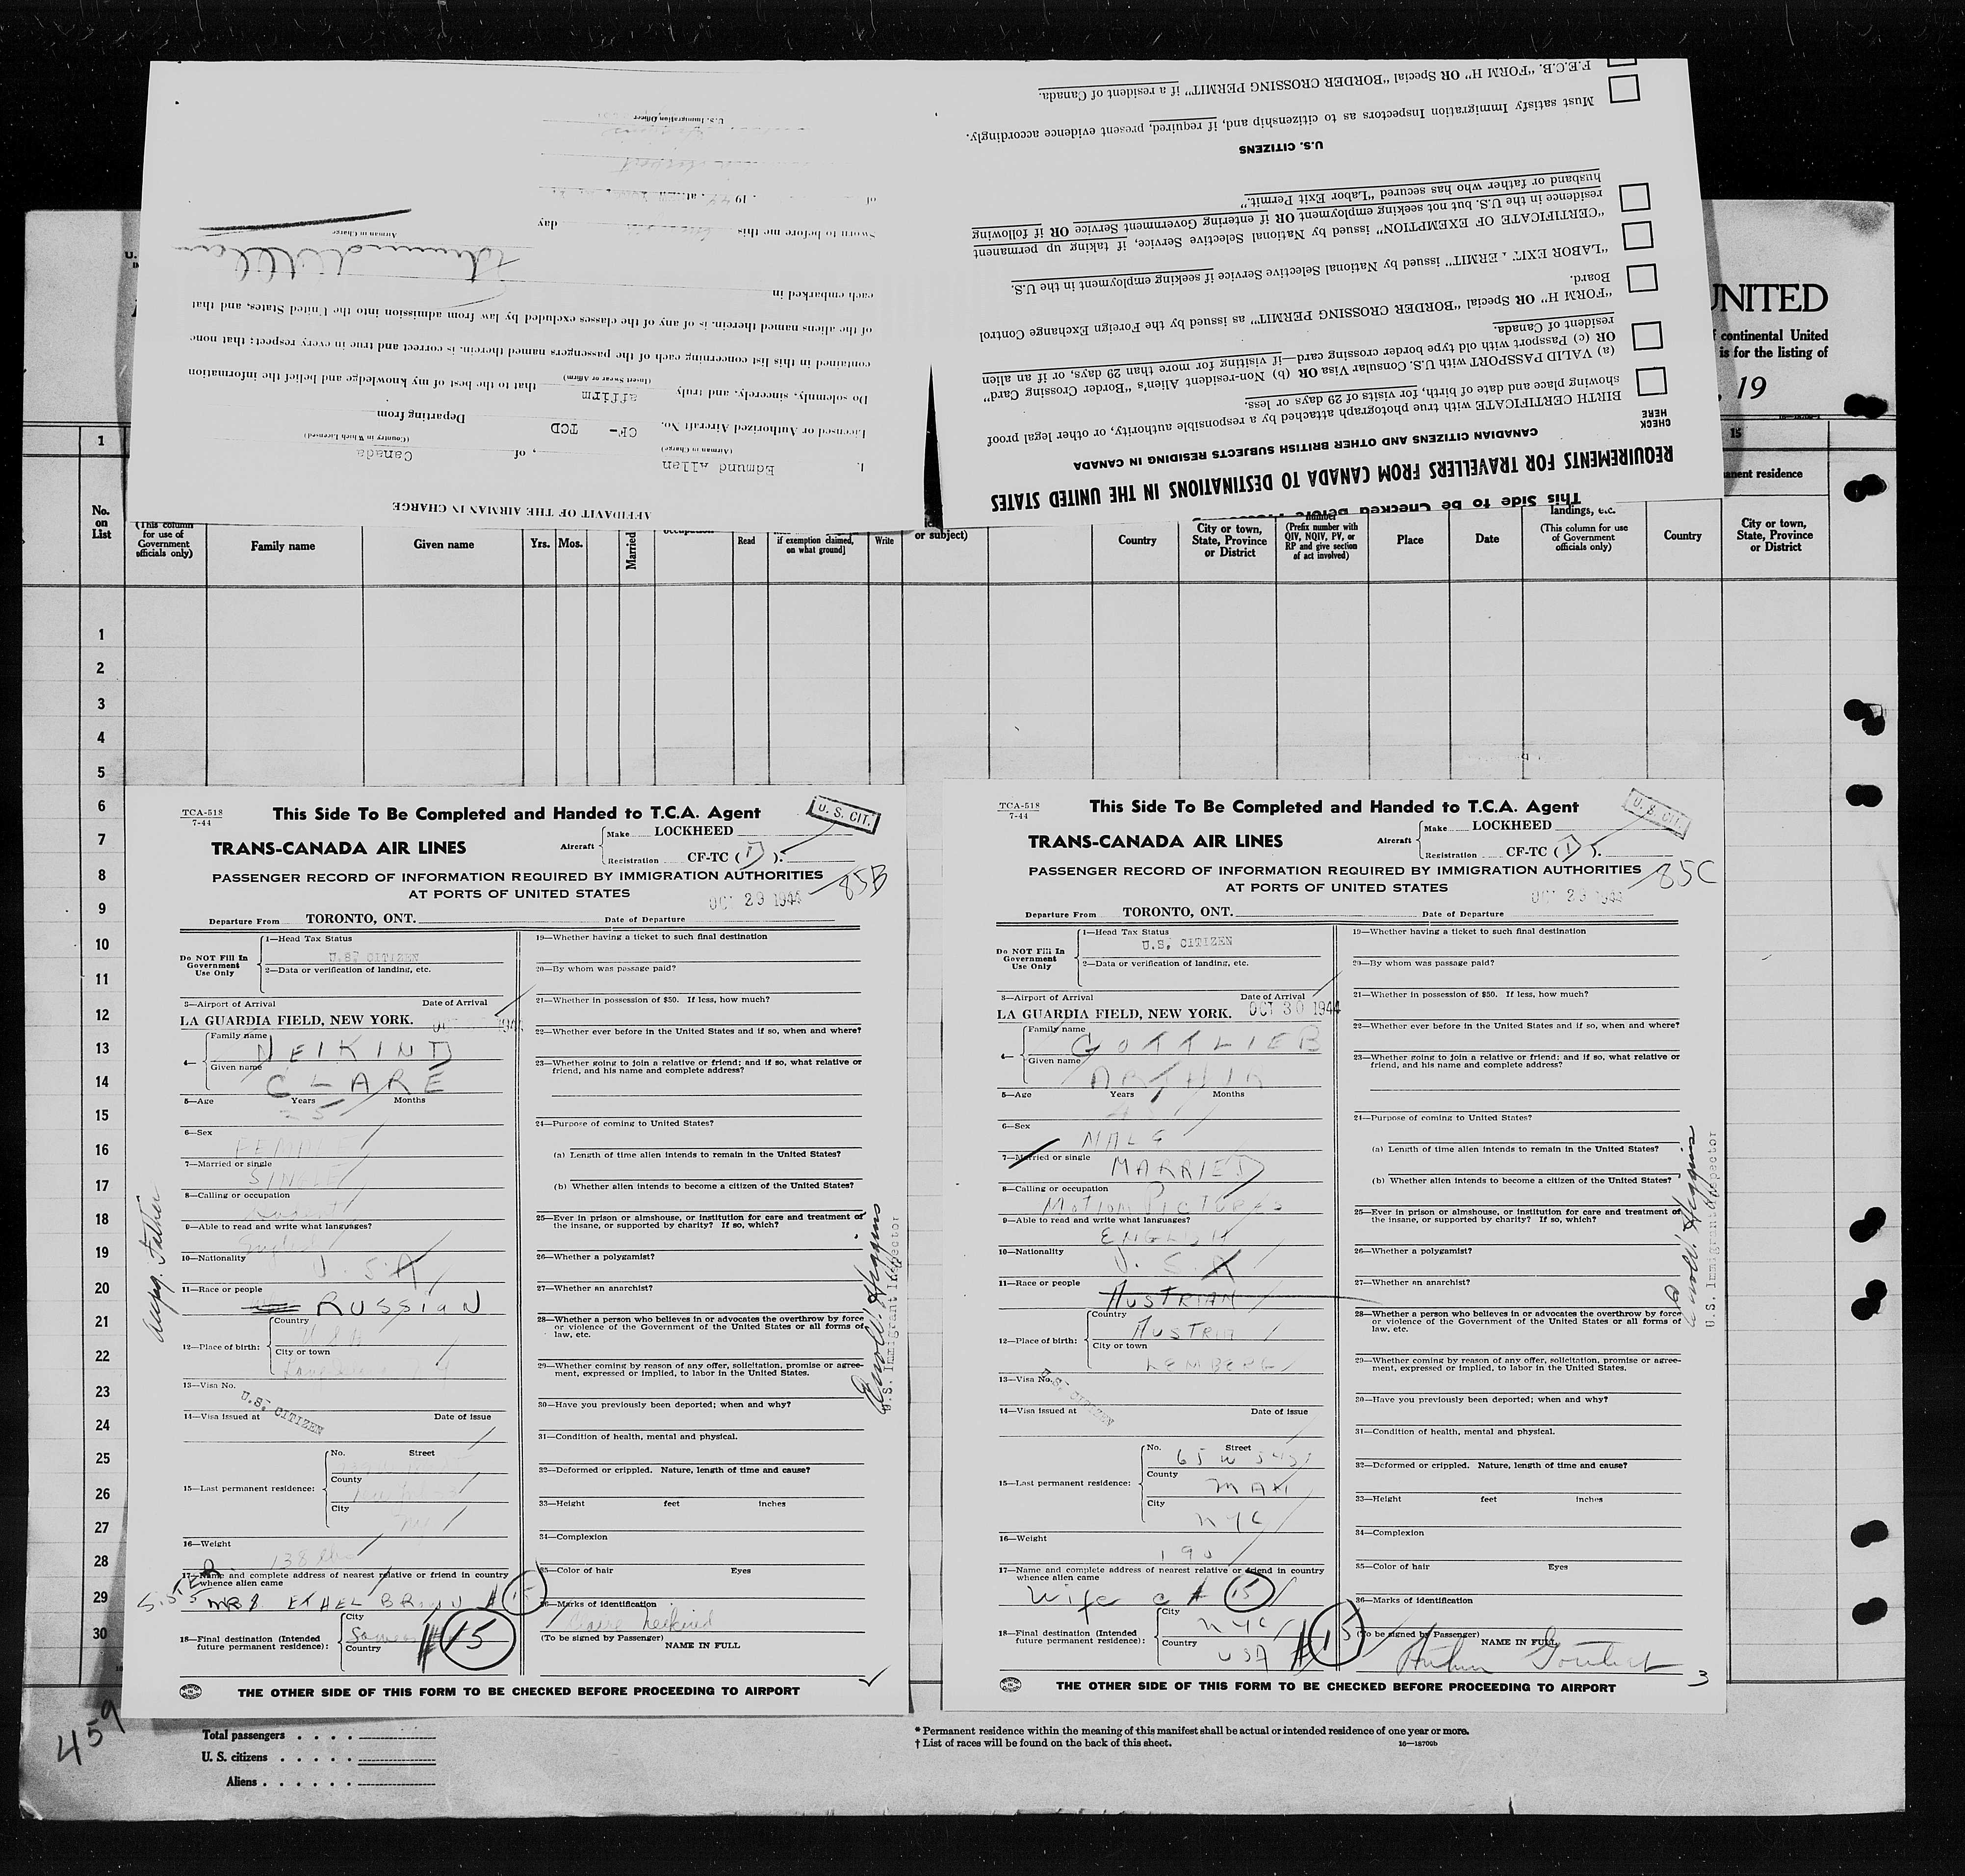 F.E.C.B. "FORM H" OR Special "BORDER CROSSING PERMIT" if a resident of Canada.
Must satisfy Immigration Inspectors as to citizenship and, if required, present evidence accordingly.
U.S. CITIZENS
husband or father who has secured "Labor Exit Permit."
residence in the U.S. but not seeking employment OR if entering Government Service OR if following
"CERTIFICATE OF EXEMPTION" issued by National Selective Service, if taking up permanent
"LABOR EXIT PERMIT" issued by National Selective Service if seeking employment in the U.S.
Board.
"FORM H" OR Special "BORDER CROSSING PERMIT" as issued by the Foreign Exchange Control
resident of Canada.
OR (c) Passport with old type border crossing card—if visiting for more than 29 days, or if an alien
(a) VALID PASSPORT with U.S. Consular Visa OR (b) Non-resident Alien's "Border Crossing Card"
showing place and date of birth, for visits of 29 days or less.
BIRTH CERTIFICATE with true photograph attached by a responsible authority, or other legal proof
CHECK HERE
CANADIAN CITIZENS AND OTHER BRITISH SUBJECTS RESIDING IN CANADA
REQUIREMENTS FOR TRAVELLERS FROM CANADA TO DESTINATIONS IN THE UNITED STATES
This Side to be Checked Before
U.S. Immigration Officer
of , 19 44, at
Sworn to before me this day
Airman in Charge
each embarked in
of the aliens named therein, is of any of the classes excluded by law from admission into the United States, and that
contained in this list concerning each of the passengers named therein, is correct and true in every respect; that none
Do solemnly, sincerely, and truly affirm that to the best of my knowledge and belief the information
(Insert Swear or Affirm)
Licensed or Authorized Aircraft No. CF- TCD Departing from
(Airman in Charge) (Country in Which Licensed)
I, Edmund Allan , of Canada
AFFIDAVIT OF THE AIRMAN IN CHARGE
UNITED
f continental United
is for the listing of
, 19
1
15
anent residence
No. on List
(This column for use of Government officials only)
Family name
Given name
Yrs.
Mos.
Married
Read
if exemption claimed, on what ground]
Write
or subject)
Country
City or town, State, Province or District
number
(Prefix number with QIV, NQIV, PV, or RP and give section of act involved)
Place
Date
landings, etc.
(This column for use of Government officials only)
Country
City or town, State, Province or District
1
2
3
4
5
6
7
8
9
10
11
12
13
14
15
16
17
18
19
20
21
22
23
24
25
26
27
28
29
30
TCA-518
7-44
This Side To Be Completed and Handed to T.C.A. Agent
U. S. CIT.
TRANS-CANADA AIR LINES
Aircraft
Make LOCKHEED
Registration CF-TC ( D ).
PASSENGER RECORD OF INFORMATION REQUIRED BY IMMIGRATION AUTHORITIES
AT PORTS OF UNITED STATES
85B
Departure From TORONTO, ONT. Date of Departure OCT 29 1944
Do NOT Fill In Government Use Only
1—Head Tax Status
U.S. CITIZEN
2—Data or verification of landing, etc.
3—Airport of Arrival Date of Arrival
LA GUARDIA FIELD, NEW YORK.
4— Family name NEIKIND
Given name CLARE
5—Age Years Months
25
6—Sex
FEMALE
7—Married or single
SINGLE
8—Calling or occupation
9—Able to read and write what languages?
English
10—Nationality
U.S.A
11—Race or people
RUSSIAN
12—Place of birth:
Country
USA
City or town
13—Visa No.
U.S. CITIZEN
14—Visa issued at Date of issue
15—Last permanent residence:
No. Street
County
City
NY
16—Weight
138 lbs
17—Name and complete address of nearest relative or friend in country whence alien came
SISTER
MRS. ETHEL BROWN # 15
18—Final destination (Intended future permanent residence):
City
Same as # 15
Country
19—Whether having a ticket to such final destination
20—By whom was passage paid?
21—Whether in possession of $50. If less, how much?
22—Whether ever before in the United States and if so, when and where?
23—Whether going to join a relative or friend; and if so, what relative or friend, and his name and complete address?
24—Purpose of coming to United States?
(a) Length of time alien intends to remain in the United States?
(b) Whether alien intends to become a citizen of the United States?
25—Ever in prison or almshouse, or institution for care and treatment of the insane, or supported by charity? If so, which?
26—Whether a polygamist?
27—Whether an anarchist?
28—Whether a person who believes in or advocates the overthrow by force or violence of the Government of the United States or all forms of law, etc.
29—Whether coming by reason of any offer, solicitation, promise or agreement, expressed or implied, to labor in the United States.
30—Have you previously been deported; when and why?
31—Condition of health, mental and physical.
32—Deformed or crippled. Nature, length of time and cause?
33—Height feet inches
34—Complexion
35—Color of hair Eyes
36—Marks of identification
Claire Neikind
(To be signed by Passenger) NAME IN FULL
U.S. Immigrant Inspector
THE OTHER SIDE OF THIS FORM TO BE CHECKED BEFORE PROCEEDING TO AIRPORT
TCA-518
7-44
This Side To Be Completed and Handed to T.C.A. Agent
U. S. CIT.
TRANS-CANADA AIR LINES
Aircraft
Make LOCKHEED
Registration CF-TC ( D ).
PASSENGER RECORD OF INFORMATION REQUIRED BY IMMIGRATION AUTHORITIES
AT PORTS OF UNITED STATES
85C
Departure From TORONTO, ONT. Date of Departure OCT 29 1944
Do NOT Fill In Government Use Only
1—Head Tax Status
U.S. CITIZEN
2—Data or verification of landing, etc.
3—Airport of Arrival Date of Arrival
LA GUARDIA FIELD, NEW YORK. OCT 30 1944
4— Family name GOTTLIEB
Given name ARTHUR
5—Age Years Months
6—Sex
MALE
7—Married or single
MARRIED
8—Calling or occupation
MOTION PICTURES
9—Able to read and write what languages?
ENGLISH
10—Nationality
U.S.A
11—Race or people
AUSTRIAN
12—Place of birth:
Country
AUSTRIA
City or town
LEMBERG
13—Visa No.
U.S. CITIZEN
14—Visa issued at Date of issue
15—Last permanent residence:
No. Street
65 W 54 ST
County
MAN
City
NYC
16—Weight
190
17—Name and complete address of nearest relative or friend in country whence alien came
Wife # 15
18—Final destination (Intended future permanent residence):
City
NYC
Country
USA # 15
19—Whether having a ticket to such final destination
20—By whom was passage paid?
21—Whether in possession of $50. If less, how much?
22—Whether ever before in the United States and if so, when and where?
23—Whether going to join a relative or friend; and if so, what relative or friend, and his name and complete address?
24—Purpose of coming to United States?
(a) Length of time alien intends to remain in the United States?
(b) Whether alien intends to become a citizen of the United States?
25—Ever in prison or almshouse, or institution for care and treatment of the insane, or supported by charity? If so, which?
26—Whether a polygamist?
27—Whether an anarchist?
28—Whether a person who believes in or advocates the overthrow by force or violence of the Government of the United States or all forms of law, etc.
29—Whether coming by reason of any offer, solicitation, promise or agreement, expressed or implied, to labor in the United States.
30—Have you previously been deported; when and why?
31—Condition of health, mental and physical.
32—Deformed or crippled. Nature, length of time and cause?
33—Height feet inches
34—Complexion
35—Color of hair Eyes
36—Marks of identification
(To be signed by Passenger) NAME IN FULL
Arthur Gottlieb
3
U.S. Immigrant Inspector
THE OTHER SIDE OF THIS FORM TO BE CHECKED BEFORE PROCEEDING TO AIRPORT
459
Total passengers
U. S. citizens
Aliens
* Permanent residence within the meaning of this manifest shall be actual or intended residence of one year or more.
† List of races will be found on the back of this sheet.
16—18709b